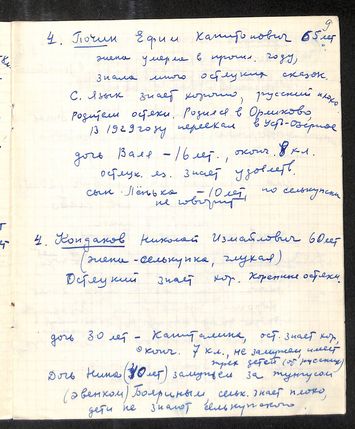 9
4. Почин Ефим Капитонович 65 лет
жена умерла в прошл. году,
знала много остяцких сказок.
С. язык знает хорошо, русский плохо
Родители остяки. Родился в Орликово,
В 1929 году переехал в Усть-Озёрное
дочь Валя – 16 лет., оконч. 8 кл.
остяцк. яз. знает удовлетв.
сын Лёнька – 10 лет, по селькупски
не говорит
4. Кондаков Николай Измайлович 60 лет
(жена – селькупка, глухая)
Остяцкий знает хор. Коренные остяки.
дочь 30 лет – Капиталина, ост. знает хор,
оконч. 7 кл., не замужем имеет
трех детей (от русских)
Дочь Нина (40 лет) замужем за тунгусом
(эвенком) Бояриным сельк. знает плохо,
дети не знают селькупского.